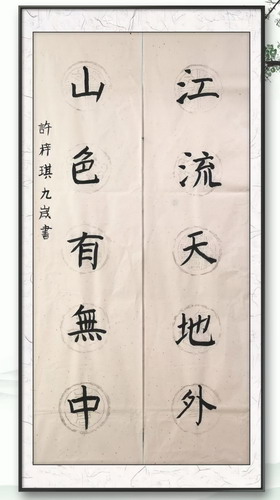 江流天地外
山色有無中
許梓琪九歲書